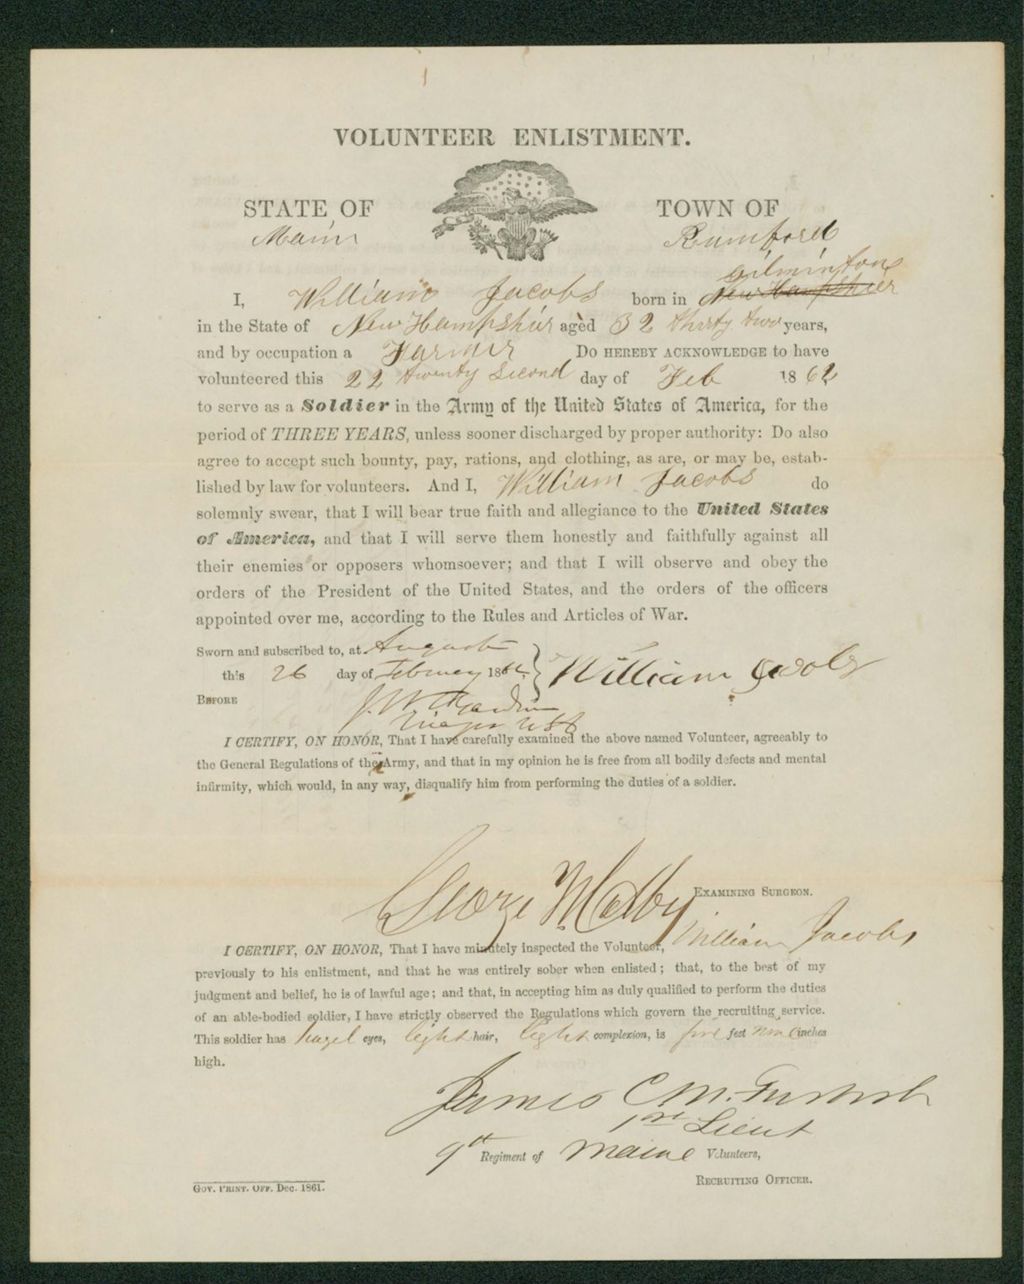 VOLUNTEER ENLISTMENT.
STATE OF TOWN OF
Main Rumford
Gilminton
I, William Jacobs born in New Hampshier
in the State of New Hampshir aged 32 thirty two years,
and by occupation a Farmir Do HEREBY ACKNOWLEDGE to have
volunteered this 22 twenty Second day of Feb 1862
to serve as a Soldier in the Army of the United States of America, for the
period of THREE YEARS, unless sooner discharged by proper authority: Do also
agree to accept such bounty, pay, rations, and clothing, as are, or may be, estab-
lished by law for volunteers. And I, William Jacobs do
solemnly swear, that I will bear true faith and allegiance to the United States
of America, and that I will serve them honestly and faithfully against all
their enemies or opposers whomsoever; and that I will observe and obey the
orders of the President of the United States, and the orders of the officers
appointed over me, according to the Rules and Articles of War.
Sworn and subscribed to, at Augusta
this 26 day of February 1862 William Jacobs
BEFORE J. W. T.
Major USA
I CERTIFY, ON HONOR, That I have carefully examined the above named Volunteer, agreeably to
the General Regulations of the Army, and that in my opinion he is free from all bodily defects and mental
infirmity, which would, in any way, disqualify him from performing the duties of a soldier.
George M Colby EXAMINING SURGEON.
I CERTIFY, ON HONOR, That I have minutely inspected the Volunteer, William Jacobs
previously to his enlistment, and that he was entirely sober when enlisted; that, to the best of my
judgment and belief, he is of lawful age; and that, in accepting him as duly qualified to perform the duties
of an able-bodied soldier, I have strictly observed the Regulations which govern the recruiting service.
This soldier has hazel eyes, light hair, light complexion, is five feet nine inches
high.
James C M. Furbish
1st Lieut
9th Regiment of Maine Volunteers,
RECRUITING OFFICER.
GOV. PRINT. OFF. Dec. 1861.